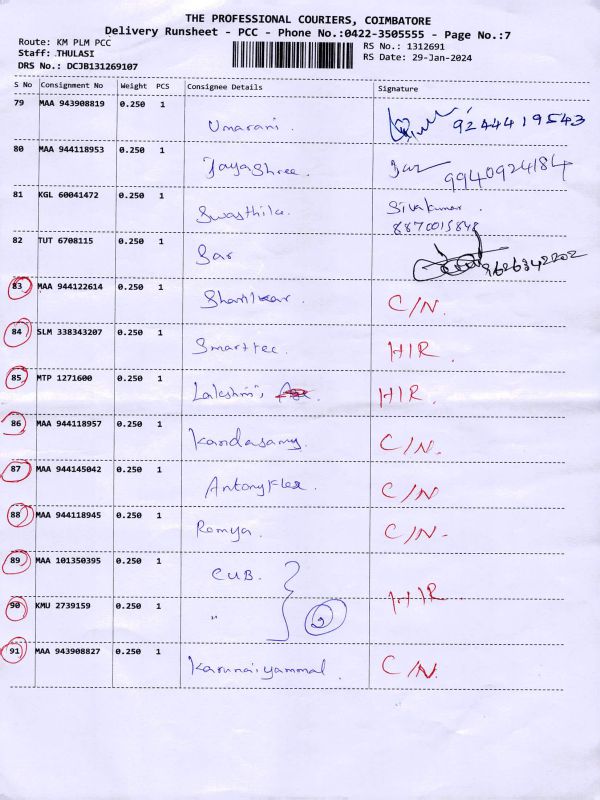 THE PROFESSIONAL COURIERS, COIMBATORE
Delivery Runsheet - PCC - Phone No.:0422-3505555 - Page No.:7
Route: KM PLM PCC
RS No.: 1312691
Staff: THULASI
RS Date: 29-Jan-2024
DRS No.: DCJB131269107
S No Consignment No Weight PCS Consignee Details Signature
79 MAA 943908819 0.250 1 Umarani. 9244419543
80 MAA 944118953 0.250 1 Jayashree. 9940924184
81 KGL 60041472 0.250 1 Swasthik. Sivakumar.
8870015848
82 TUT 6708115 0.250 1 Sar 9626342202
83 MAA 944122614 0.250 1 Shantkar C/N.
84 SLM 338343207 0.250 1 Smarttec. HIR.
85 MTP 1271600 0.250 1 Lakshmi, HIR.
86 MAA 944118957 0.250 1 Kandasamy. C/N.
87 MAA 944145042 0.250 1 Antonyflex. C/N
88 MAA 944118945 0.250 1 Romya. C/N-
89 MAA 101350395 0.250 1 CUB.
HIR
90 KMU 2739159 0.250 1 " 2
91 MAA 943908827 0.250 1 Karunaiyammal C/N.